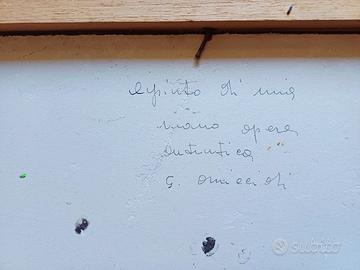 dipinto di mia
mano opera
autentica
G. Omiccioli
subito